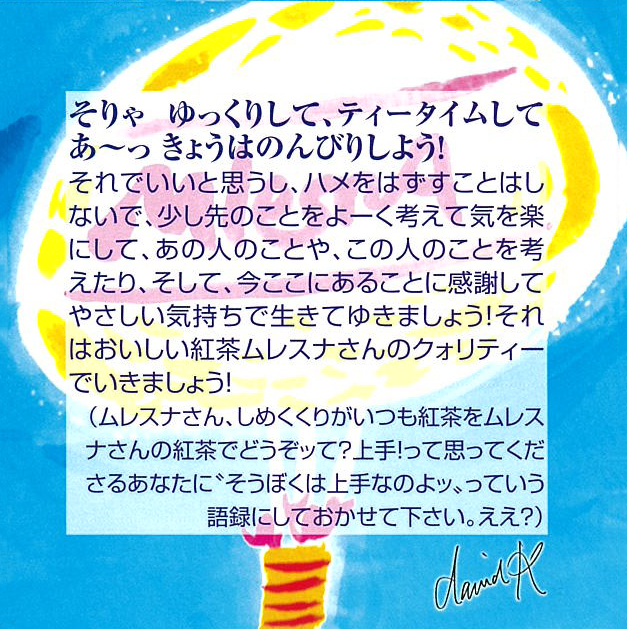 そりゃ　ゆっくりして、ティータイムして
あ～っ きょうはのんびりしよう!
それでいいと思うし、ハメをはずすことはし
ないで、少し先のことをよーく考えて気を楽
にして、あの人のことや、この人のことを考
えたり、そして、今ここにあることに感謝して
やさしい気持ちで生きてゆきましょう!それ
はおいしい紅茶ムレスナさんのクォリティー
でいきましょう!
（ムレスナさん、しめくくりがいつも紅茶をムレス
ナさんの紅茶でどうぞッて?上手!って思ってくだ
さるあなたに〝そうぼくは上手なのよッ〟っていう
語録にしておかせて下さい。ええ?）
david K